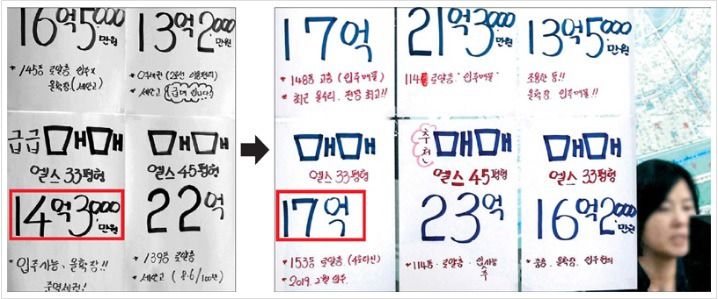 16억 5000만원
* 145동 로얄층 입주X
올확장 (세안고)
13억 2000만원
* 세안고 (급매입니다)
급급 매매
엘스 33평형
14억 3000만원
* 입주가능, 올확장!!
매매
엘스 45평형
22억
* 139동 로얄층
* 세안고 (8.6/100만)
17억
* 148동 고층 (입주매물)
* 최근 올수리. 전망 최고!!
21억 3000만원
114동 로얄층. 입주매물
13억 5000만원
조용한 동!!
올확장. 입주매물!!
매매
엘스 33평형
17억
* 153동 로얄층
* 2019. 2월 입주
추천
매매
엘스 45평형
23억
* 114동. 로얄층.
매매
엘스 33평형
16억 2000만원
* 중층. 올확장. 입주협의